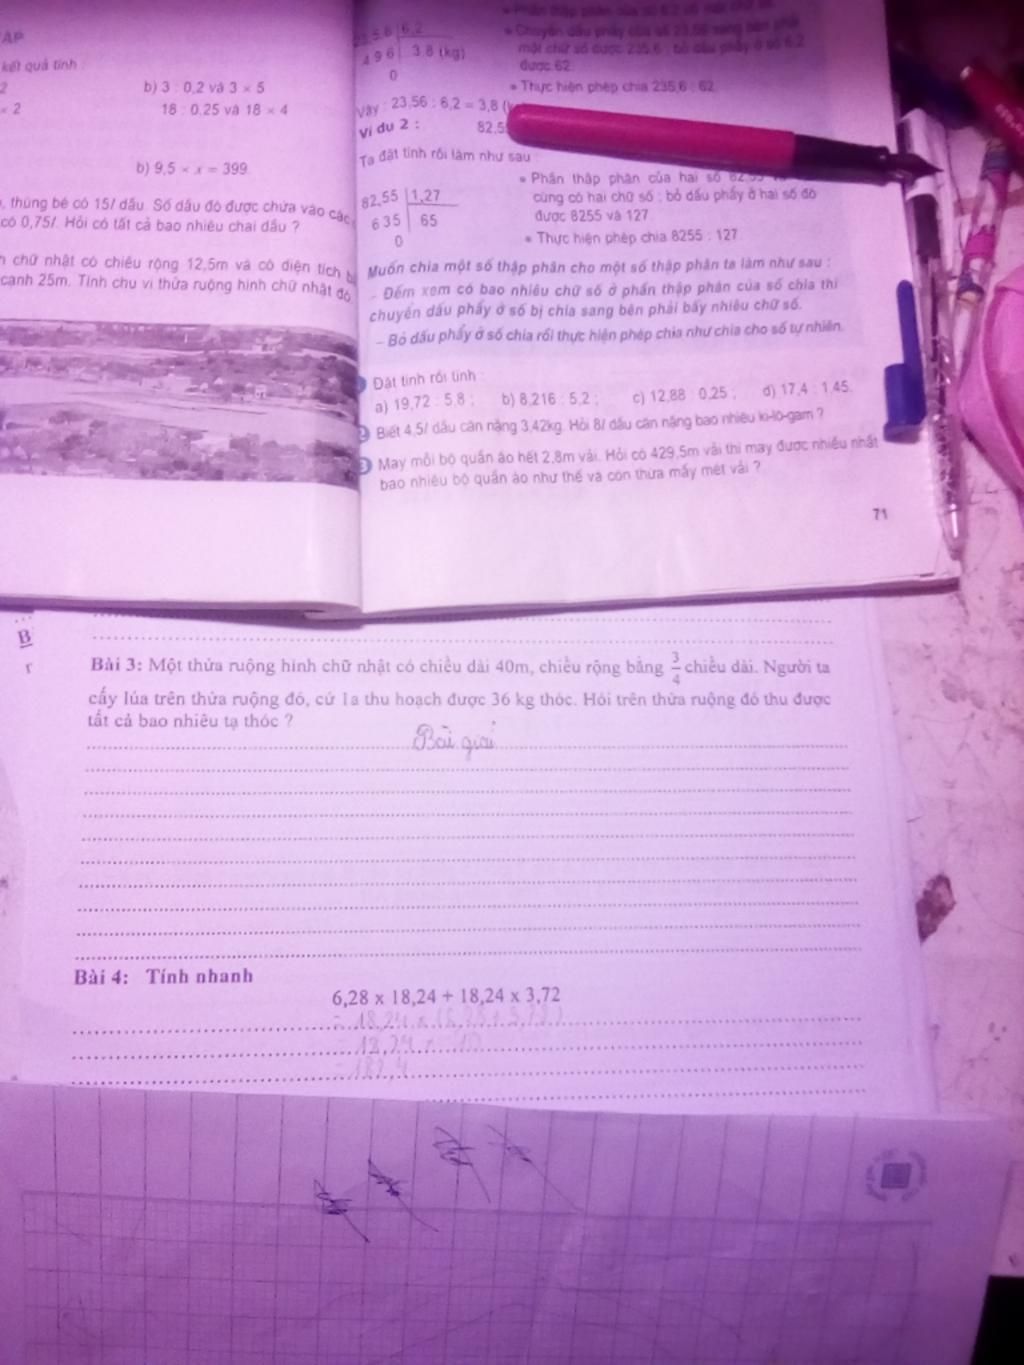 ẬP
kết quả tính :
2
b) 3 : 0,2 và 3 × 5
× 2
18 : 0,25 và 18 × 4
b) 9,5 × x = 399
thùng bé có 15l dầu. Số dầu đó được chứa vào các
có 0,75l. Hỏi có tất cả bao nhiêu chai dầu ?
chữ nhật có chiều rộng 12,5m và có diện tích
cạnh 25m. Tính chu vi thửa ruộng hình chữ nhật đó
6,2
4 9 6 3,8 (kg)
0
• Chuyển dấu phẩy của số 23,56 sang bên phải
một chữ số được 235,6 ; bỏ dấu phẩy ở số 6,2
được 62.
• Thực hiện phép chia 235,6 : 62.
Vậy : 23,56 : 6,2 = 3,8
Ví dụ 2 : 82,5
Ta đặt tính rồi làm như sau :
82,55 1,27
6 3 5 65
0
• Phần thập phân của hai số
cùng có hai chữ số ; bỏ dấu phẩy ở hai số đó
được 8255 và 127.
• Thực hiện phép chia 8255 : 127.
Muốn chia một số thập phân cho một số thập phân ta làm như sau :
– Đếm xem có bao nhiêu chữ số ở phần thập phân của số chia thì
chuyển dấu phẩy ở số bị chia sang bên phải bấy nhiêu chữ số.
– Bỏ dấu phẩy ở số chia rồi thực hiện phép chia như chia cho số tự nhiên.
Đặt tính rồi tính :
a) 19,72 : 5,8 ; b) 8,216 : 5,2 ; c) 12,88 : 0,25 ; d) 17,4 : 1,45.
2 Biết 4,5l dầu cân nặng 3,42kg. Hỏi 8l dầu cân nặng bao nhiêu ki-lô-gam ?
3 May mỗi bộ quần áo hết 2,8m vải. Hỏi có 429,5m vải thì may được nhiều nhất
bao nhiêu bộ quần áo như thế và còn thừa mấy mét vải ?
71
B
r
Bài 3: Một thửa ruộng hình chữ nhật có chiều dài 40m, chiều rộng bằng 3/4 chiều dài. Người ta
cấy lúa trên thửa ruộng đó, cứ 1a thu hoạch được 36 kg thóc. Hỏi trên thửa ruộng đó thu được
tất cả bao nhiêu tạ thóc ?
Bài giải
Bài 4: Tính nhanh
6,28 x 18,24 + 18,24 x 3,72
= 18,24 x (6,28 + 3,72)
= 18,24 x 10
= 182,4